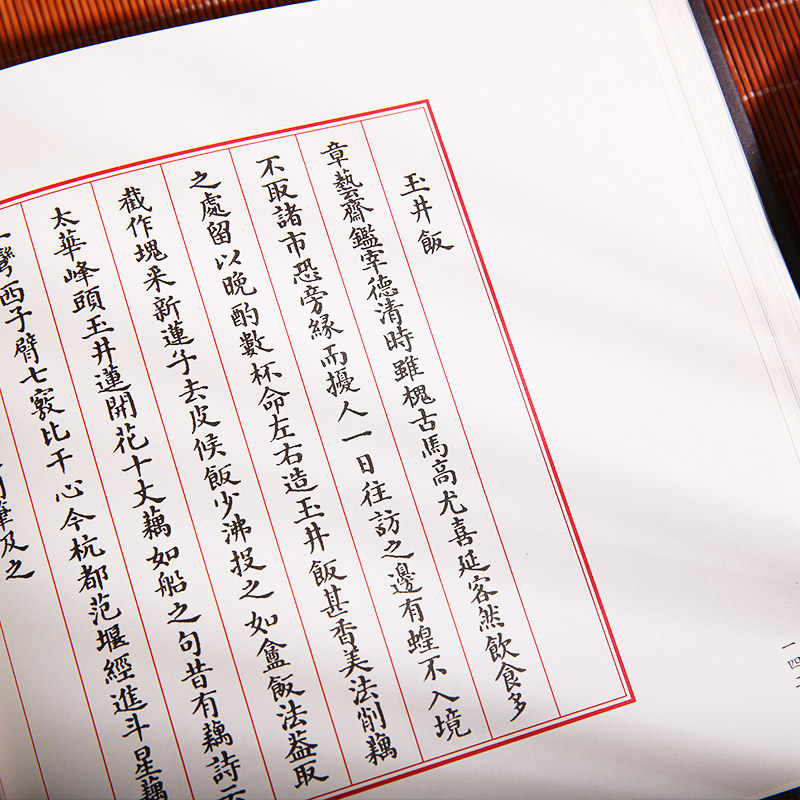 玉井飯
章藝齋鑑宰德清時雖槐古馬高尤喜延客然飲食多
不取諸市恐旁緣而擾人一日往訪之邊有蝗不入境
之處留以晚酌數杯命左右造玉井飯甚香美法削藕
截作塊采新蓮子去皮候飯少沸投之如盦飯法蓋取
太華峰頭玉井蓮開花十丈藕如船之句昔有藕詩云
一彎西子臂七竅比干心今杭都范堰經進斗星藕
筆及之
一四